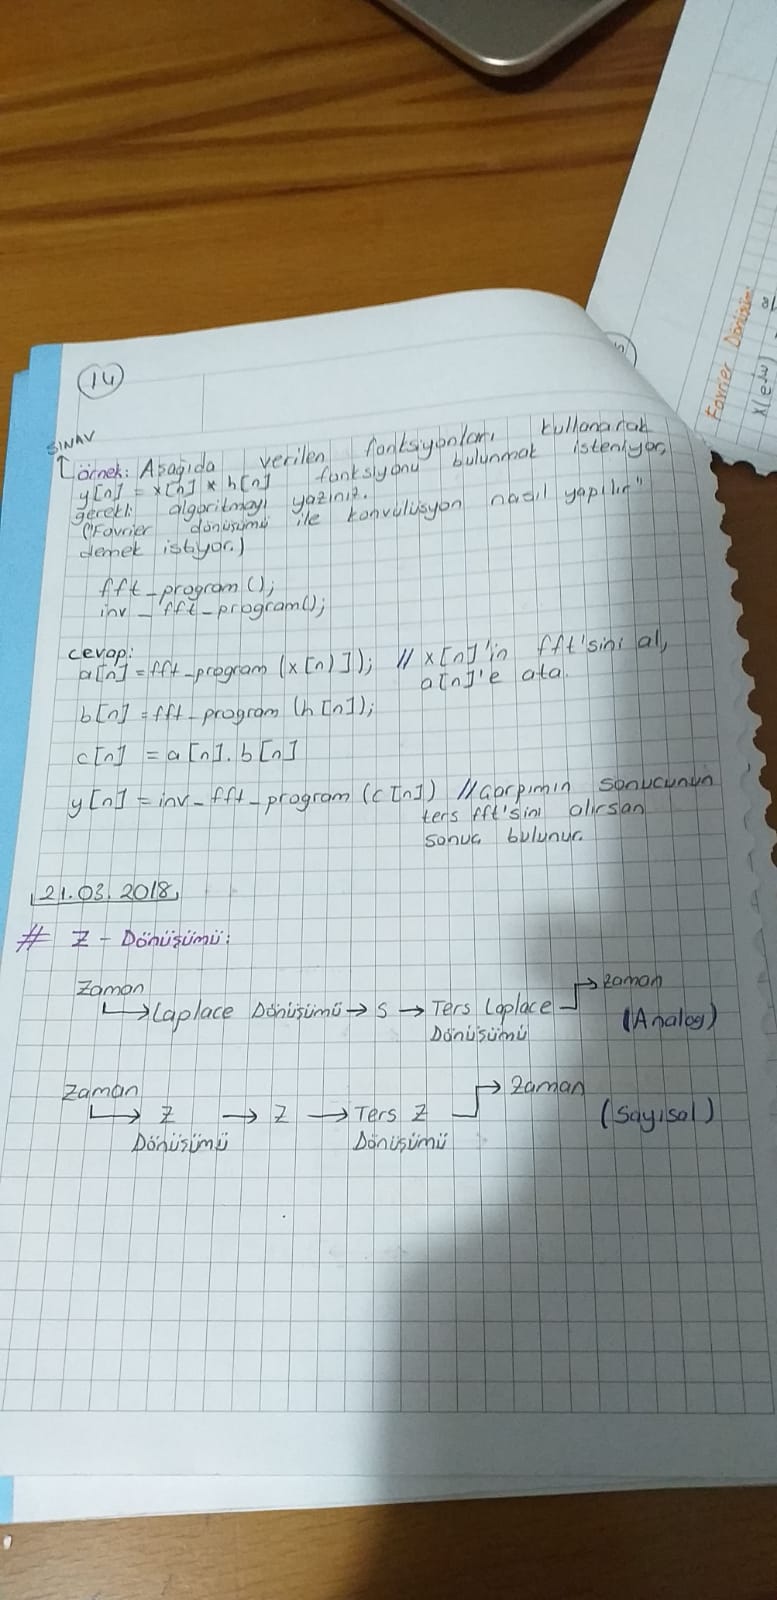 14
SINAV
örnek: Aşağıda verilen fonksiyonları kullanarak
y[n] = x[n] * h[n] fonksiyonu bulunmak isteniyor,
gerekli algoritmayı yazınız.
("Fourier dönüşümü ile konvülüsyon nasıl yapılır"
demek istiyor.)
fft_program();
inv_fft_program();
cevap:
a[n] = fft_program (x[n)]); // x[n]'in fft'sini al,
a[n]'e ata.
b[n] = fft_program (h[n]);
c[n] = a[n]. b[n]
y[n] = inv_fft_program (c[n]) // Çarpımın sonucunun
ters fft'sini alırsan
sonuç bulunur.
21.03.2018
# Z - Dönüşümü:
Zaman
→ Laplace Dönüşümü → s → Ters Laplace → zaman
Dönüşümü (Analog)
Zaman
→ Z → Z → Ters Z → zaman
Dönüşümü Dönüşümü (Sayısal)
Fourier Dönüşüm